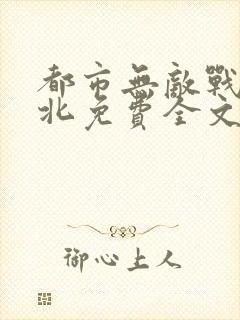 都市無敵戰
北免費全文
御心上人